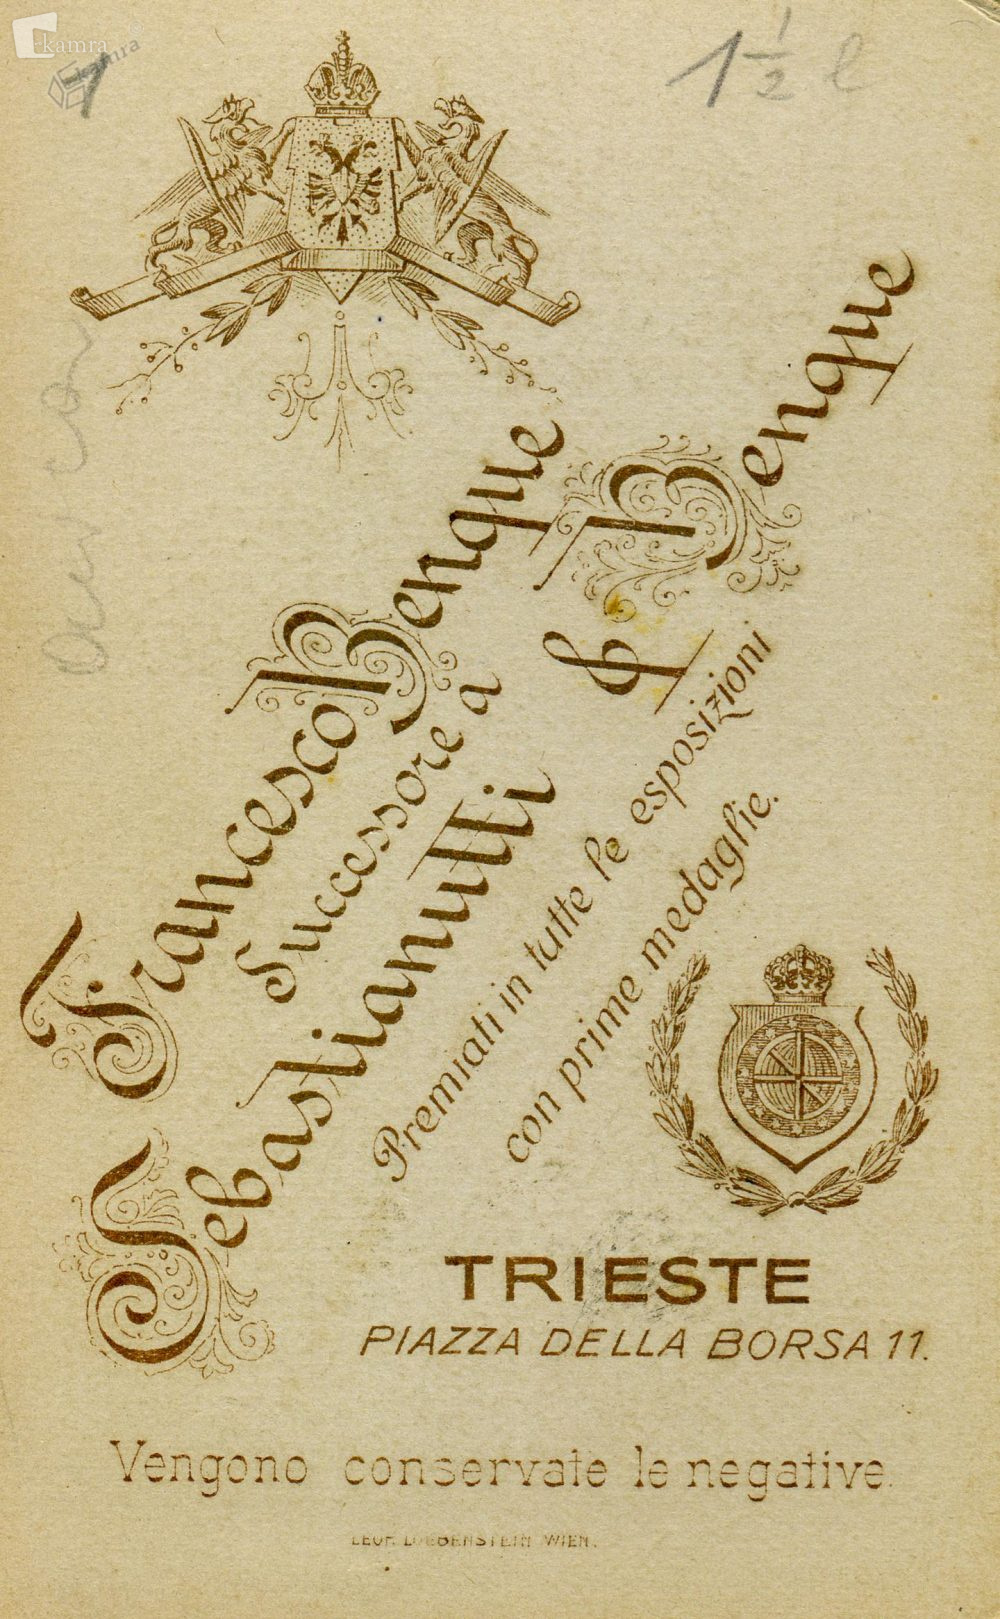 kamra
kamra
1
1 1/2 l
Francesco Bengue
Successore a
Sebastianutti & Benque
Premiati in tutte le esposizioni
con prime medaglie.
TRIESTE
PIAZZA DELLA BORSA 11.
Vengono conservate le negative.
LEOP. LOEBENSTEIN WIEN.